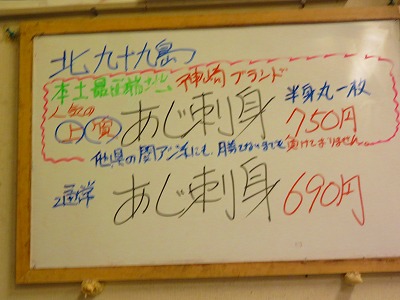 北九十九島
本土最西端 神崎ブランド
人気の
上質 あじ刺身 半身丸一枚
750円
他県の関アジにも、勝てないまでも負けておりません。
通常 あじ刺身 690円